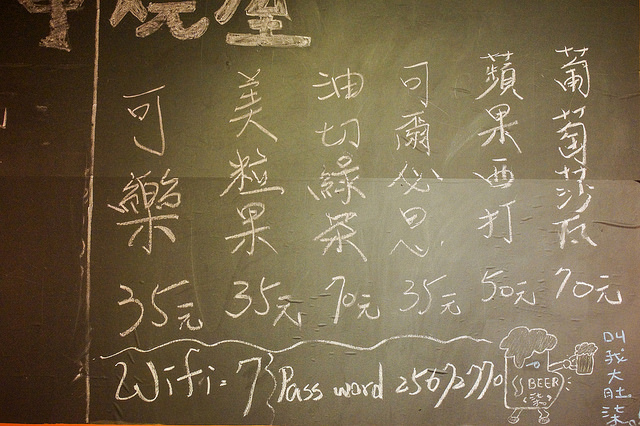 串燒屋
葡萄莎瓦 70元
蘋果西打 50元
可爾必思 35元
油切綠茶 70元
美粒果 35元
可樂 35元
Wifi: 73 Password 25672770
BEER
柒
叫我大肚柒